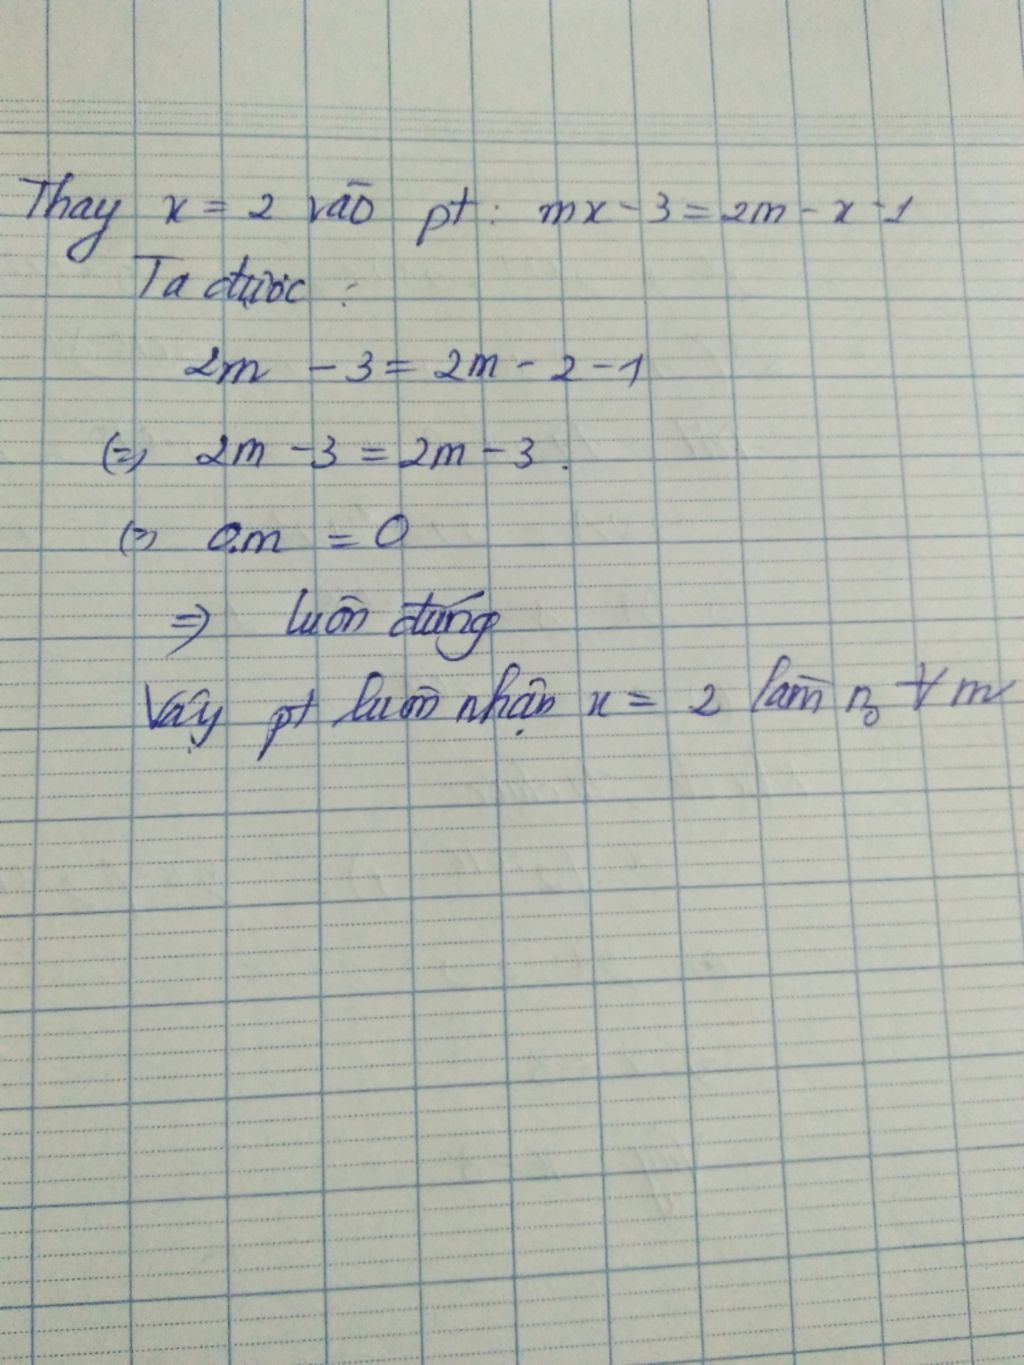 Thay x = 2 vào pt: mx - 3 = 2m - x - 1
Ta được :
2m - 3 = 2m - 2 - 1
(=) 2m - 3 = 2m - 3 .
(=) 0.m = 0
=> luôn đúng
Vậy pt luôn nhận x = 2 làm n0 ∀ m